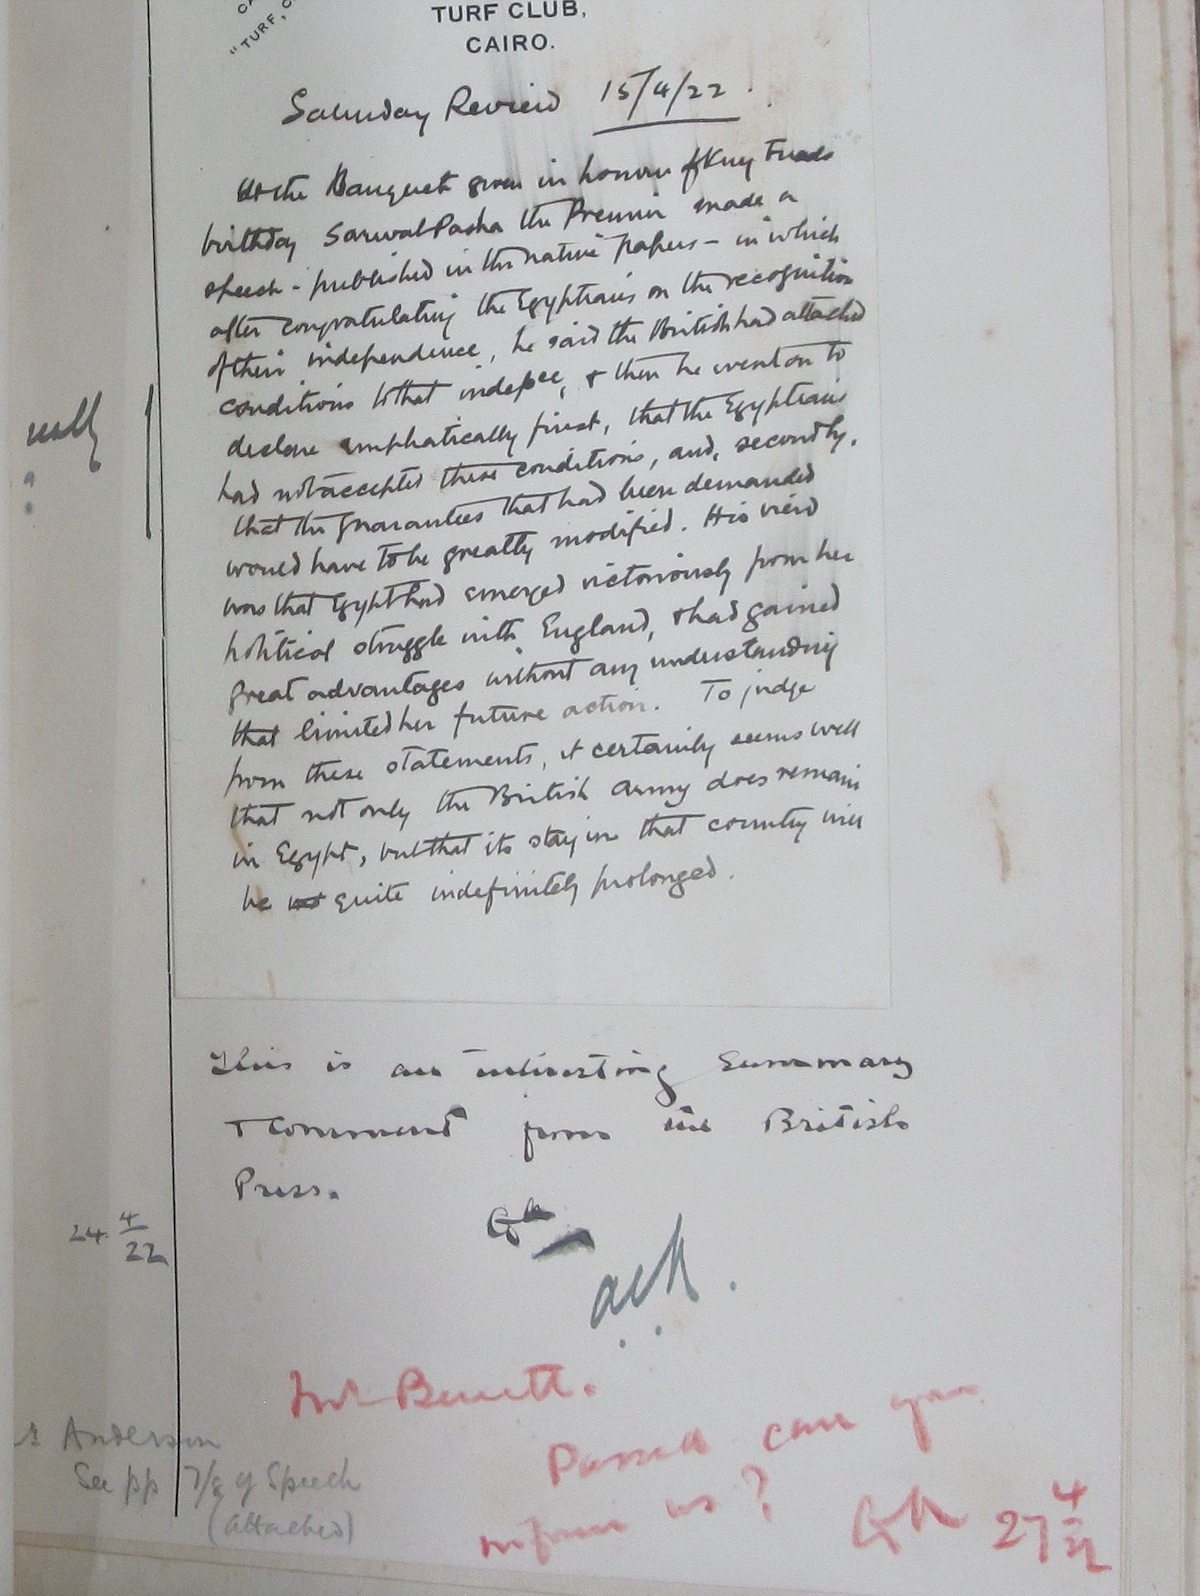 CA
"TURF, C
TURF CLUB,
CAIRO.
Saturday Review 15/4/22.
At the Banquet given in honour of King Fuads
birthday Sarwat Pasha the Premier made a
speech - published in the native papers - in which
after congratulating the Egyptians on the recognition
of their independence, he said the British had attached
conditions to that indepce, & then he went on to
declare emphatically first, that the Egyptians
had not accepted these conditions, and, secondly,
that the guarantees that had been demanded
would have to be greatly modified. His view
was that Egypt had emerged victoriously from her
political struggle with England, & had gained
great advantages without any understanding
that limited her future action. To judge
from these statements, it certainly seems well
that not only the British Army does remain
in Egypt, but that its stay in that country will
be quite indefinitely prolonged.
This is an interesting Summary
& Comment from the British
Press.
24 4/22
Mr Bennett.
can you
inform us?
27 4/22
Anderson
See pp 7/8 of Speech
(attached)